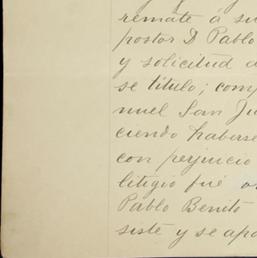 remate á su
postor D Pablo
y solicitud d
se título; comp
nuel San Ju
ciendo haberse
con perjuicio
litigio fué
Pablo Benito
siste y se apo